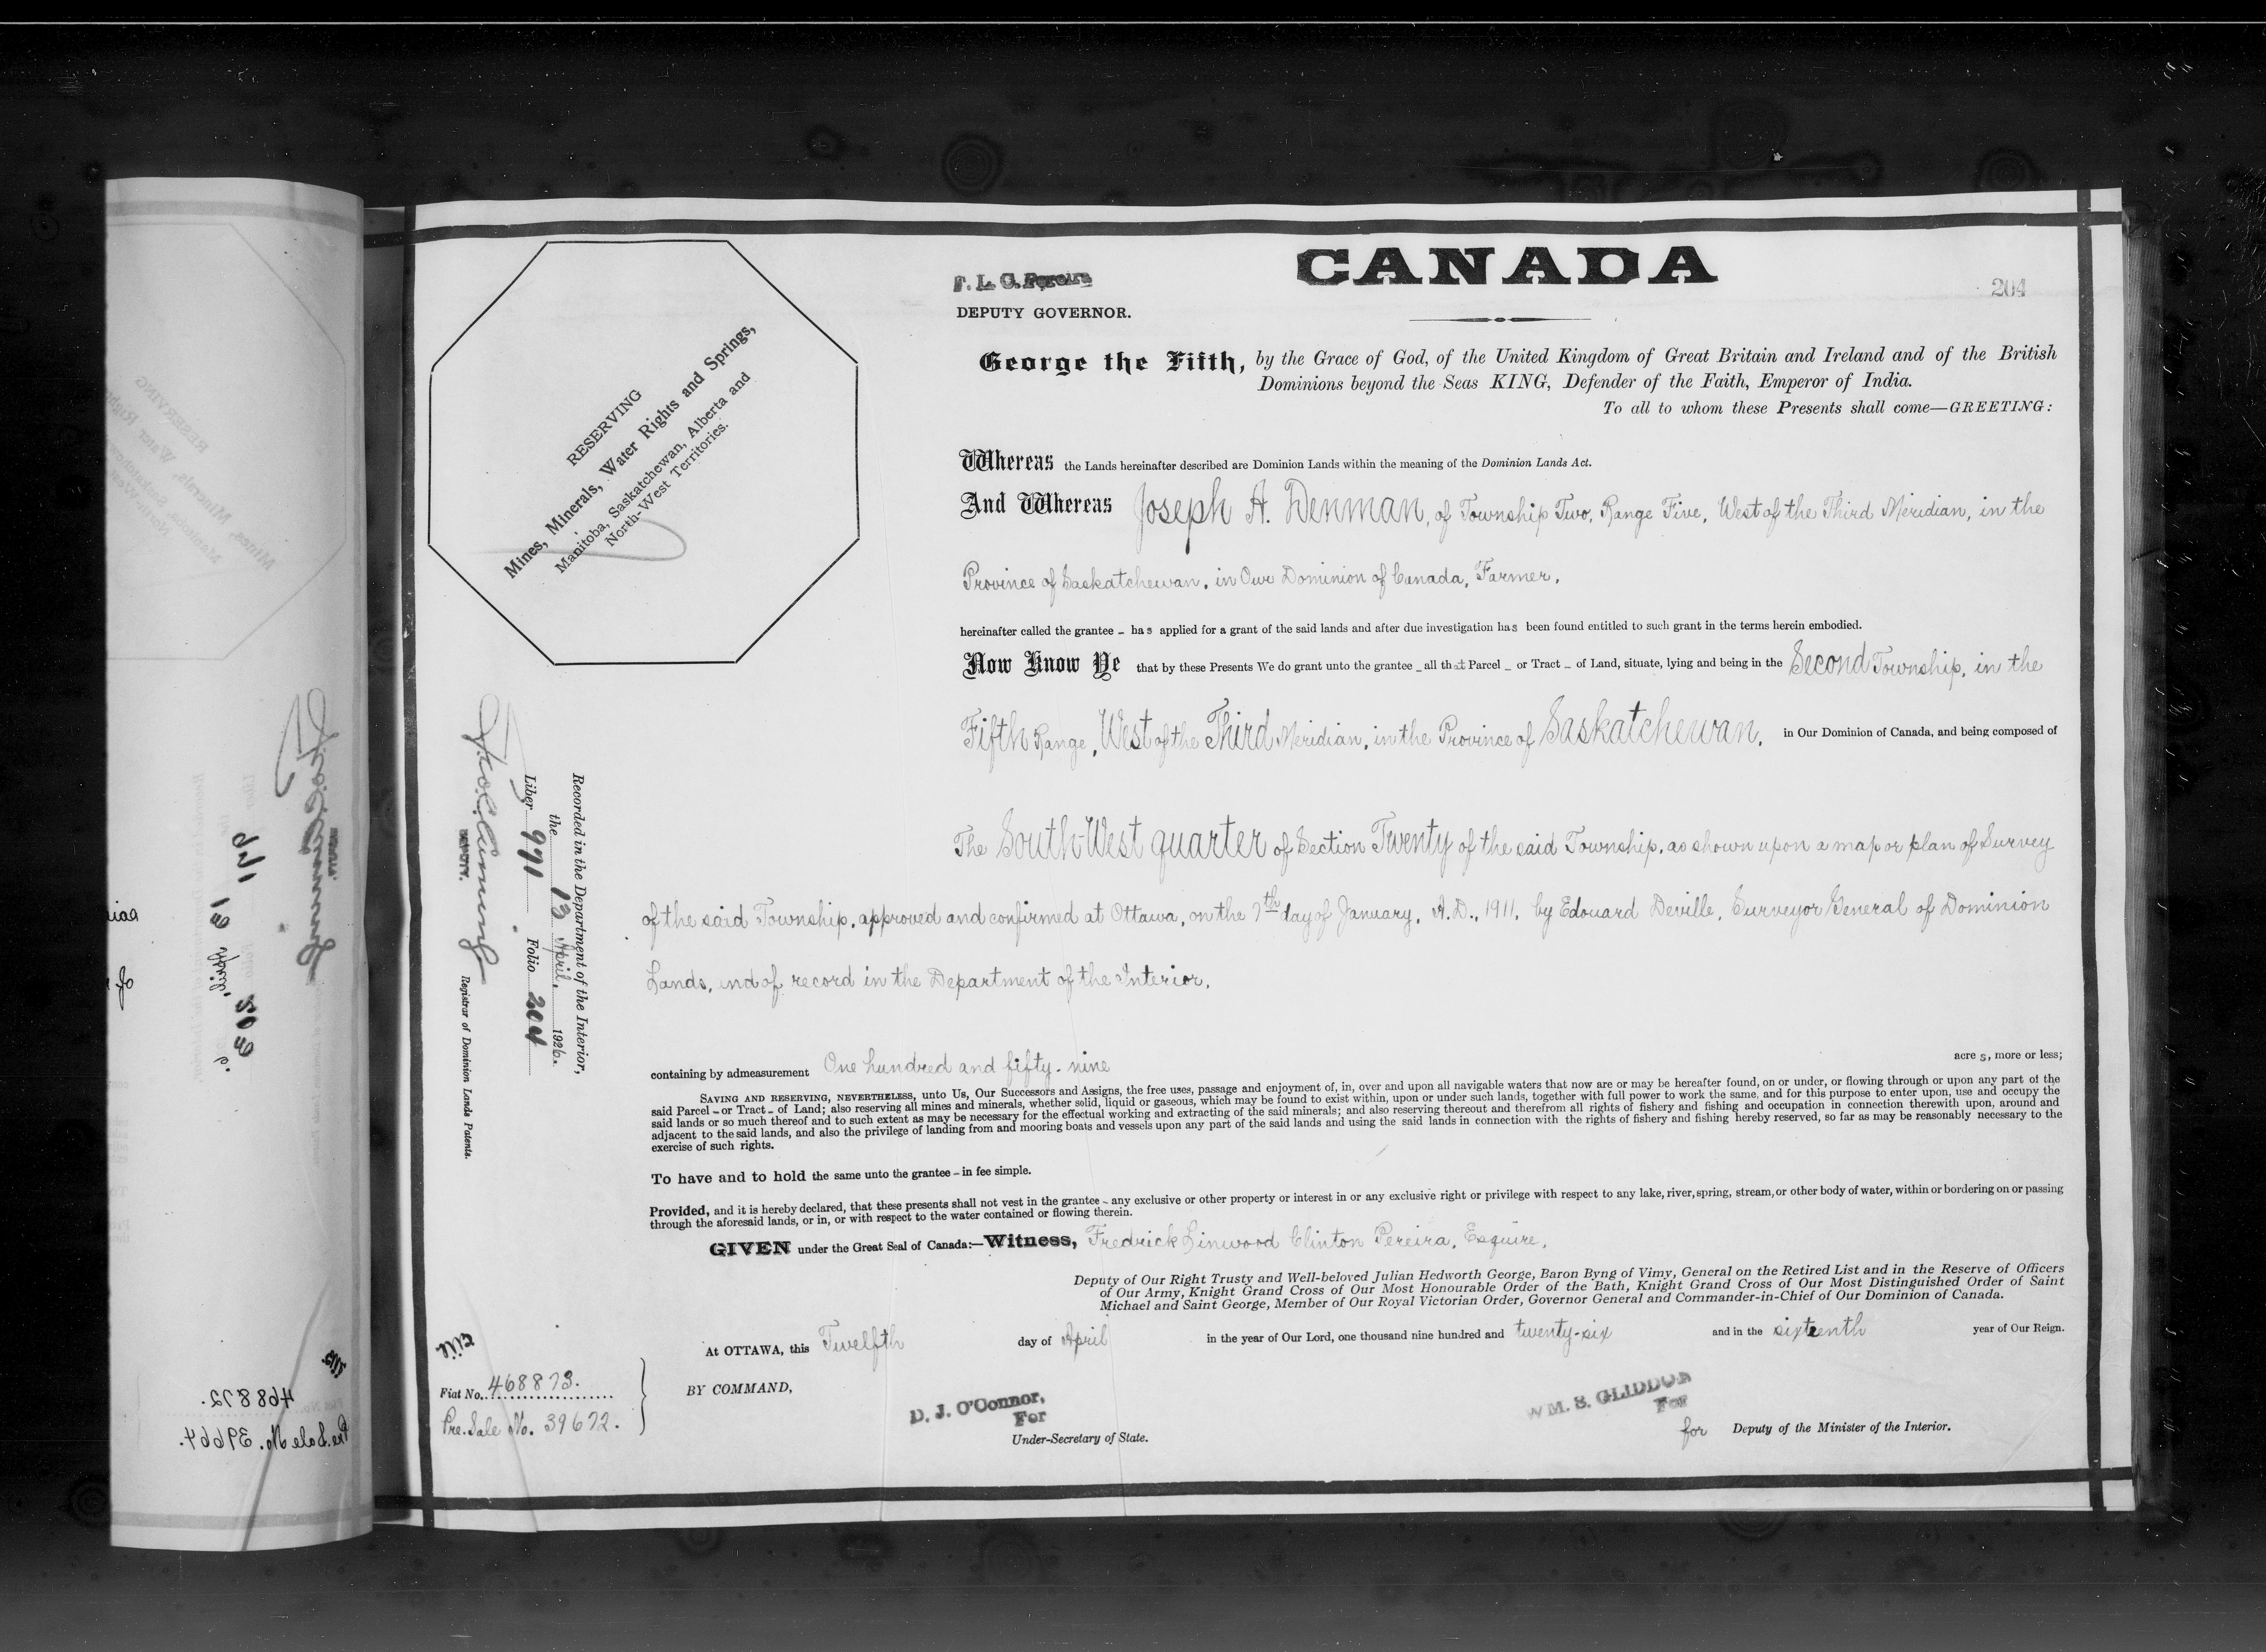 CANADA
204
F. L. C. Pereira
DEPUTY GOVERNOR.
RESERVING
Mines, Minerals, Water Rights and Springs,
Manitoba, Saskatchewan, Alberta and
North-West Territories.
George the Fifth, by the Grace of God, of the United Kingdom of Great Britain and Ireland and of the British
Dominions beyond the Seas KING, Defender of the Faith, Emperor of India.
To all to whom these Presents shall come—GREETING:
Whereas the Lands hereinafter described are Dominion Lands within the meaning of the Dominion Lands Act.
And Whereas Joseph A. Denman, of Township Two, Range Five, West of the Third Meridian, in the
Province of Saskatchewan, in Our Dominion of Canada, Farmer,
hereinafter called the grantee - has applied for a grant of the said lands and after due investigation has been found entitled to such grant in the terms herein embodied.
Now Know Ye that by these Presents We do grant unto the grantee - all that Parcel - or Tract - of Land, situate, lying and being in the Second Township, in the
Fifth Range, West of the Third Meridian, in the Province of Saskatchewan, in Our Dominion of Canada, and being composed of
The South-West quarter of Section Twenty of the said Township, as shown upon a map or plan of Survey
of the said Township, approved and confirmed at Ottawa, on the 7th day of January, A.D., 1911, by Edouard Deville, Surveyor General of Dominion
Lands, and of record in the Department of the Interior,
containing by admeasurement One hundred and fifty-nine acres, more or less;
SAVING AND RESERVING, NEVERTHELESS, unto Us, Our Successors and Assigns, the free uses, passage and enjoyment of, in, over and upon all navigable waters that now are or may be hereafter found, on or under, or flowing through or upon any part of the
said Parcel - or Tract - of Land; also reserving all mines and minerals, whether solid, liquid or gaseous, which may be found to exist within, upon or under such lands, together with full power to work the same, and for this purpose to enter upon, use and occupy the
said lands or so much thereof and to such extent as may be necessary for the effectual working and extracting of the said minerals; and also reserving thereout and therefrom all rights of fishery and fishing and occupation in connection therewith upon, around and
adjacent to the said lands, and also the privilege of landing from and mooring boats and vessels upon any part of the said lands and using the said lands in connection with the rights of fishery and fishing hereby reserved, so far as may be reasonably necessary to the
exercise of such rights.
To have and to hold the same unto the grantee - in fee simple.
Provided, and it is hereby declared, that these presents shall not vest in the grantee - any exclusive or other property or interest in or any exclusive right or privilege with respect to any lake, river, spring, stream, or other body of water, within or bordering on or passing
through the aforesaid lands, or in, or with respect to the water contained or flowing therein.
GIVEN under the Great Seal of Canada:—Witness, Fredrick Linwood Clinton Pereira, Esquire,
Deputy of Our Right Trusty and Well-beloved Julian Hedworth George, Baron Byng of Vimy, General on the Retired List and in the Reserve of Officers
of Our Army, Knight Grand Cross of Our Most Honourable Order of the Bath, Knight Grand Cross of Our Most Distinguished Order of Saint
Michael and Saint George, Member of Our Royal Victorian Order, Governor General and Commander-in-Chief of Our Dominion of Canada.
At OTTAWA, this Twelfth day of April in the year of Our Lord, one thousand nine hundred and twenty-six and in the sixteenth year of Our Reign.
BY COMMAND,
D. J. O'Connor,
For
Under-Secretary of State.
WM. S. GLIDDON
For
for Deputy of the Minister of the Interior.
Recorded in the Department of the Interior,
the 13 April, 1926.
Liber 991 Folio 204
DEPUTY.
Registrar of Dominion Lands Patents.
Fiat No. 468873.
Pre. Sale No. 39672.
468872.
Pre. Sale No. 39664.